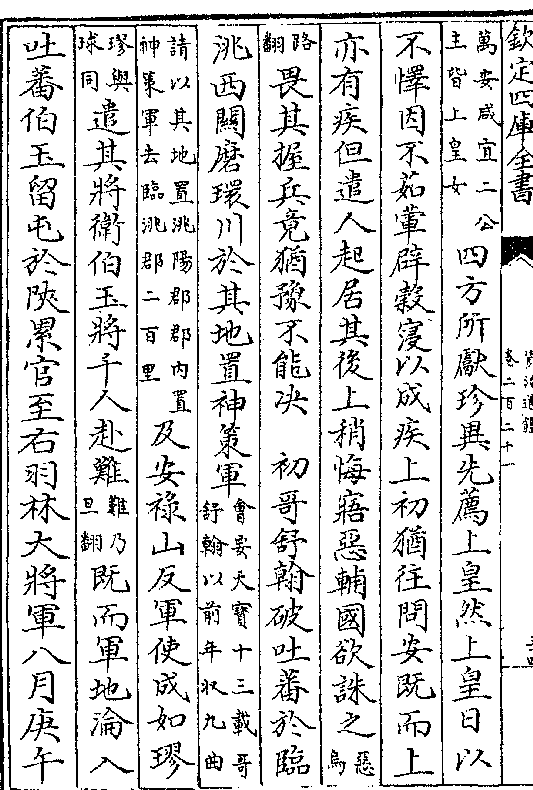 欽定四庫全書
資治通鑑
卷二百二十一
萬安咸宜二公
主皆上皇女
四方所獻珍異先薦上皇然上皇日以
不懌因不茹葷辟穀寖以成疾上初猶往問安既而上
亦有疾但遣人起居其後上稍悔寤惡輔國欲誅之
惡烏
路翻
畏其握兵竟猶豫不能决
初哥舒翰破吐蕃於臨
洮西關磨環川於其地置神策軍
會要天寶十三載哥
舒翰以前年收九曲
請以其地置洮陽郡郡内置
神策軍去臨洮郡二百里
及安祿山反軍使成如璆
璆與
球同
遣其將衛伯玉將千人赴難
難乃
旦翻
既而軍地淪入
吐蕃伯玉留屯於陜累官至右羽林大將軍八月庚午